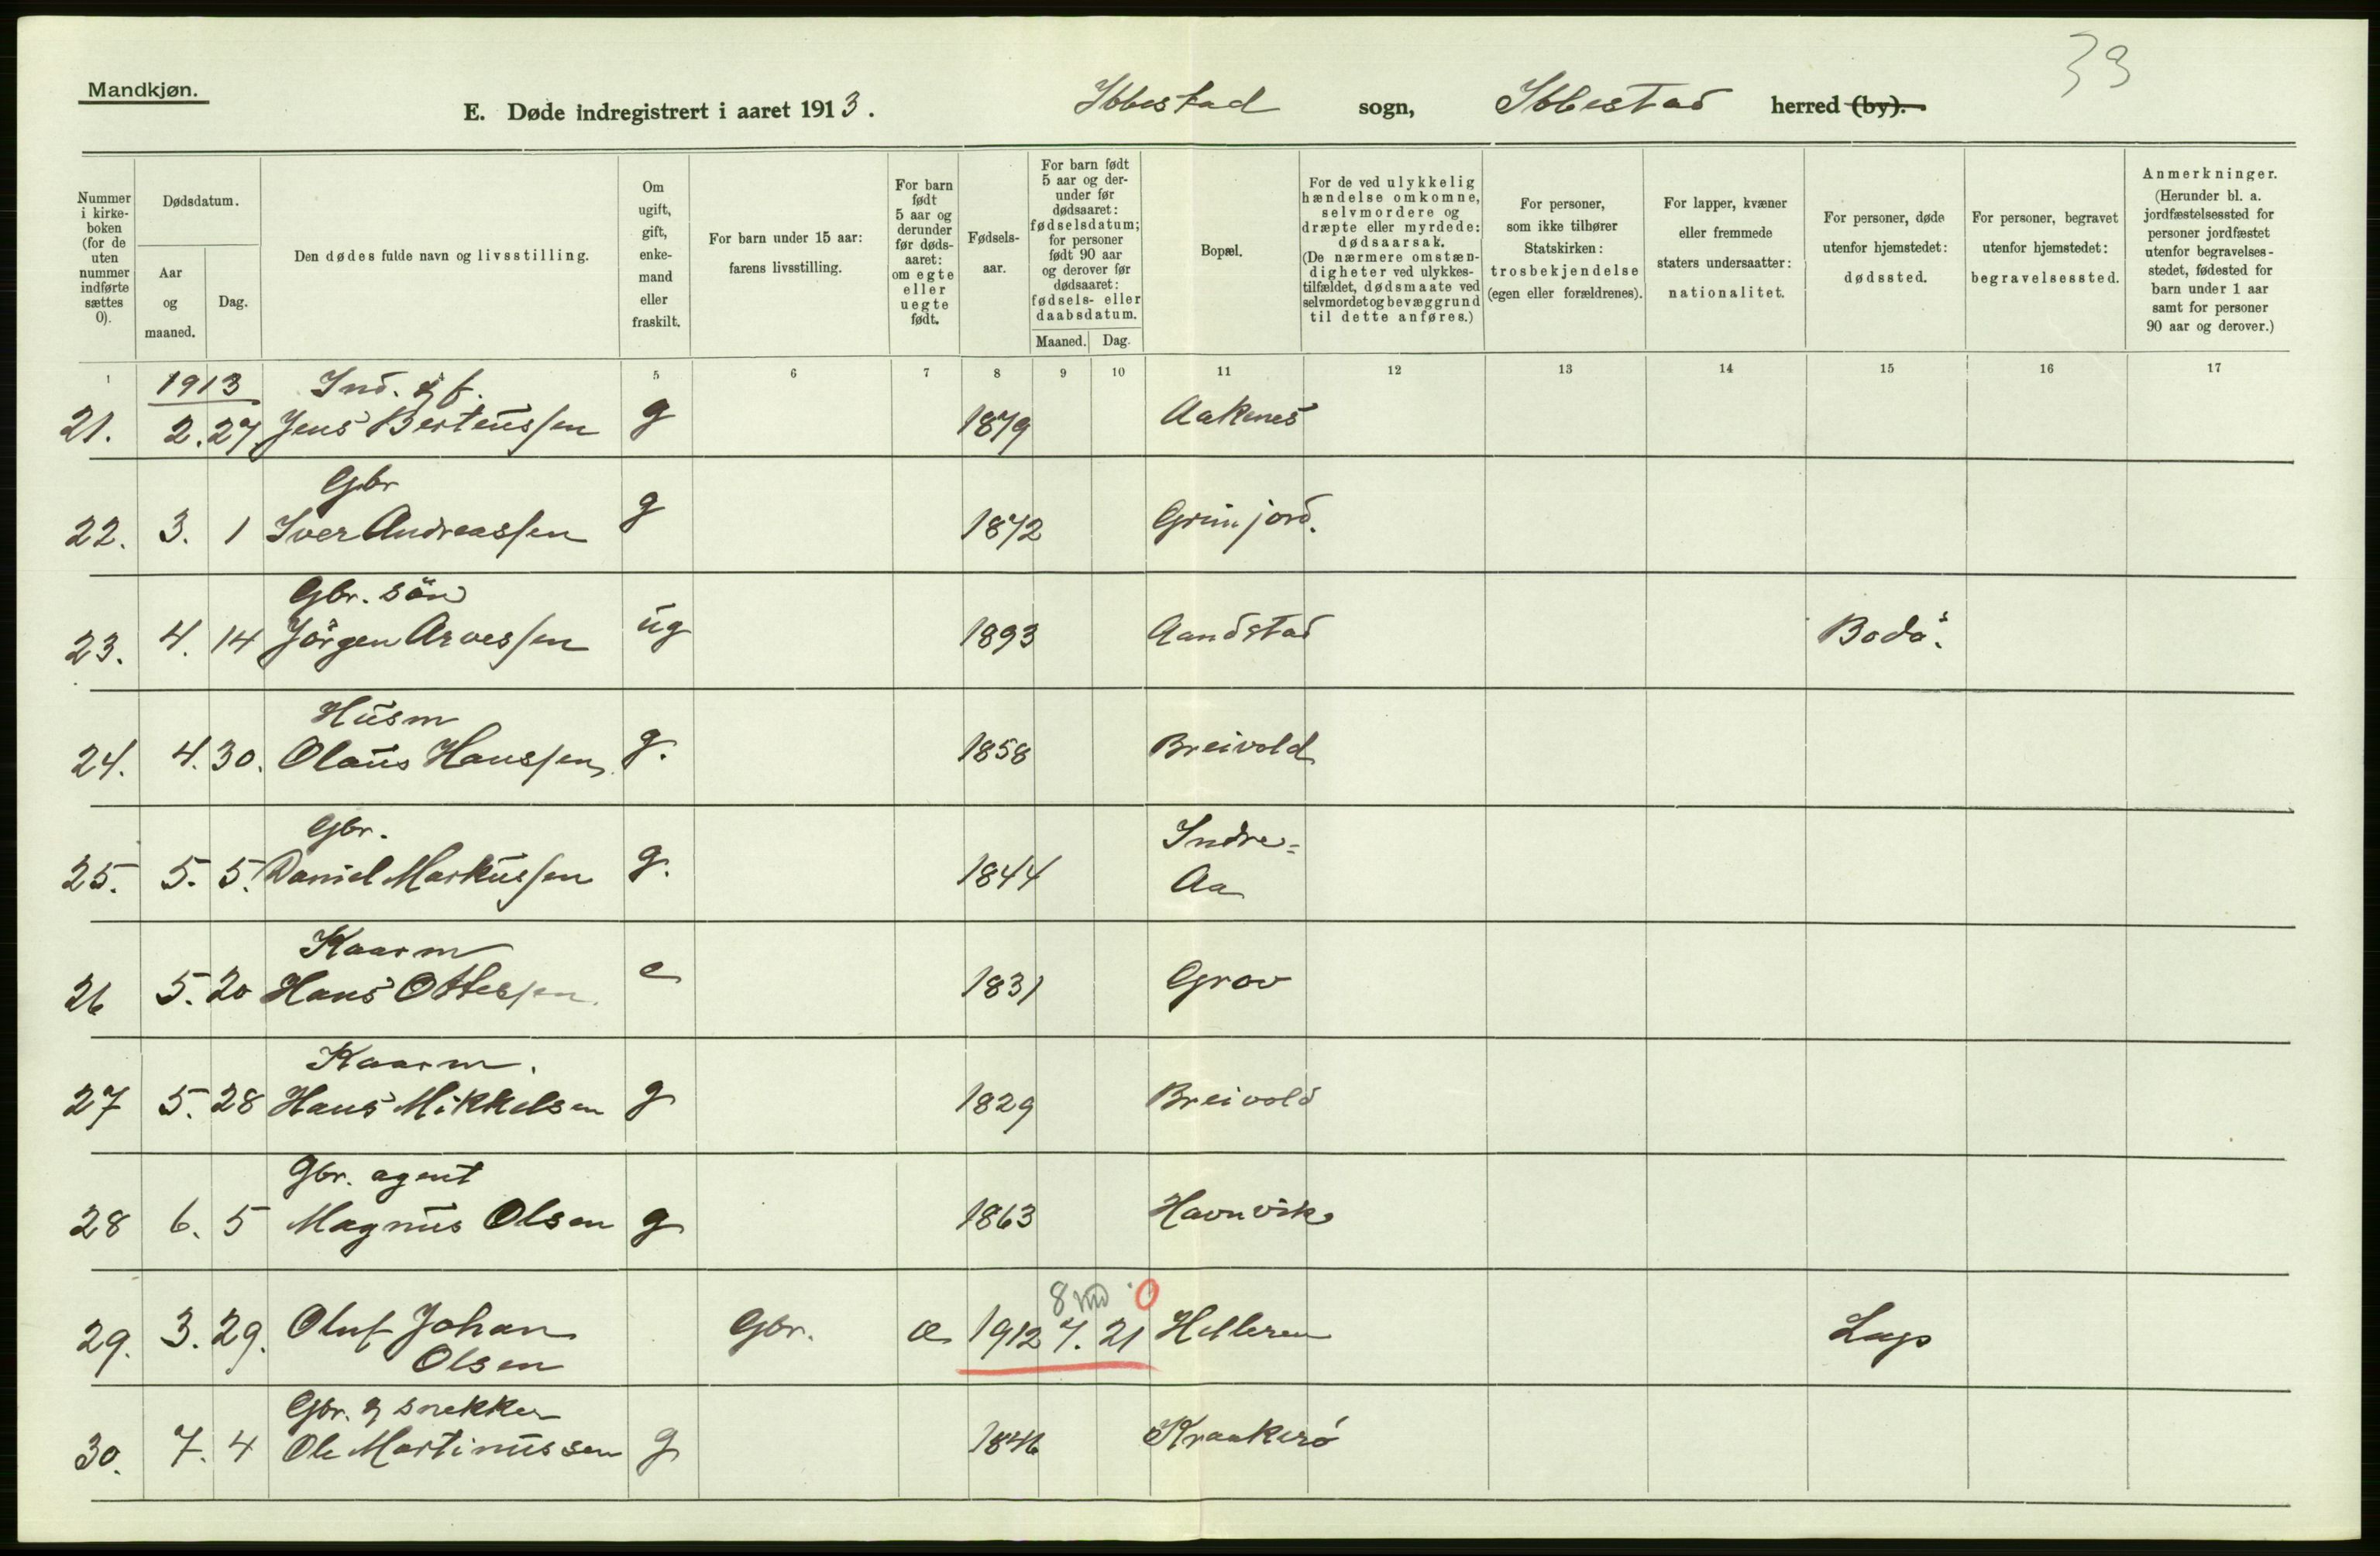 39
Mandkjøn.
E. Døde indregistrert i aaret 1913. Ibbestad sogn, Ibbestad herred (by).
Nummer i kirkeboken (for de uten nummer indførte sættes 0).
Dødsdatum.
Aar og maaned.
Dag.
Den dødes fulde navn og livsstilling.
Om ugift, gift, enkemand eller fraskilt.
For barn under 15 aar: farens livsstilling.
For barn født 5 aar og derunder før dødsaaret: om egte eller uegte født.
Fødselsaar.
For barn født 5 aar og derunder før dødsaaret: fødselsdatum; for personer født 90 aar og derover før dødsaaret: fødsels- eller daabsdatum.
Maaned. Dag.
Bopæl.
For de ved ulykkelig hændelse omkomne, selvmordere og dræpte eller myrdede: dødsaarsak. (De nærmere omstændigheter ved ulykkestilfældet, dødsmaate ved selvmordet og bevæggrund til dette anføres.)
For personer, som ikke tilhører Statskirken: trosbekjendelse (egen eller forældrenes).
For lapper, kvæner eller fremmede staters undersaatter: nationalitet.
For personer, døde utenfor hjemstedet: dødssted.
For personer, begravet utenfor hjemstedet: begravelsessted.
Anmerkninger. (Herunder bl. a. jordfæstelsessted for personer jordfæstet utenfor begravelsesstedet, fødested for barn under 1 aar samt for personer 90 aar og derover.)
1 5 6 7 8 9 10 11 12 13 14 15 16 17
1913 Ind. & f.
21. 2. 27 Jens Berteussen g 1879 Aakenes
Gbr
22. 3. 1 Iver Andreassen g 1872 Grunjord.
Gbr. sön
23. 4. 14 Jörgen Arvessen ug 1893 Aandstad Bodö.
Husm
24. 4. 30. Olaus Hanssen g. 1858 Breivold
Gbr. Indre-
25. 5. 5. Daniel Markussen g. 1844 Aa
Kaarm
26 5. 20 Hans Ottessen e 1831 Grov
Kaarm.
27 5. 28 Hans Mikkelsen g 1829 Breivold
Gbr. agent
28 6. 5 Magnus Olsen g 1863 Havnvik
8 md 0
29. 3. 29. Oluf Johan Gbr. æ 1912 7. 21 Helleren
Olsen
Gbr. & snekker
30. 7. 4 Ole Martinussen g 1846 Kraakerö